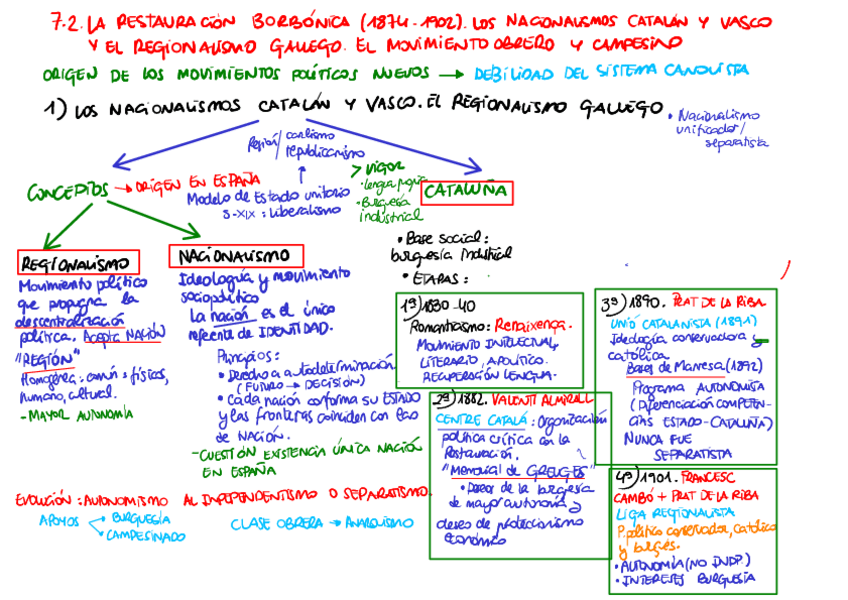 7.2. LA RESTAURACIÓN BORBÓNICA (1874-1902). LOS NACIONALISMOS CATALÁN Y VASCO
Y EL REGIONALISMO GALLEGO. EL MOVIMIENTO OBRERO Y CAMPESINO
ORIGEN DE LOS MOVIMIENTOS POLÍTICOS NUEVOS → DEBILIDAD DEL SISTEMA CANOVISTA
1) LOS NACIONALISMOS CATALÁN Y VASCO. EL REGIONALISMO GALLEGO
• Nacionalismo
unificador/
separatista
Región/ carlismo
republicanismo
CONCEPTOS → ORIGEN EN ESPAÑA
Modelo de Estado unitario
S-XIX: Liberalismo
> VIGOR
• Lengua propia
• Burguesía
industrial
CATALUÑA
REGIONALISMO
Movimiento político
que propugna la
descentralización
política. Acepta NACIÓN
"REGIÓN"
Homogénea: común: físicas,
humano, cultural.
- MAYOR AUTONOMÍA
NACIONALISMO
Ideología y movimiento
sociopolítico
La nación es el único
referente de IDENTIDAD.
Principios:
• Derecho a autodeterminación
(FUTURO → DECISIÓN)
• Cada nación conforma su ESTADO
y las fronteras coinciden con las
de NACIÓN.
- CUESTIÓN EXISTENCIA ÚNICA NACIÓN
EN ESPAÑA
EVOLUCIÓN: AUTONOMISMO AL INDEPENDENTISMO O SEPARATISMO.
APOYOS
BURGUESÍA
CAMPESINADO
CLASE OBRERA → ANARQUISMO
• Base social:
burguesía industrial
• ETAPAS:
1º) 1830-40
Romanticismo: Renaixença.
MOVIMIENTO INTELECTUAL,
LITERARIO, APOLÍTICO.
RECUPERACIÓN LENGUA.
2º) 1882. VALENTÍ ALMIRALL
CENTRE CATALÁ: Organización
política crítica con la
Restauración.
"Memorial de GREUGES"
• Deseo de la burguesía
de mayor autonomía y
deseos de proteccionismo
económico
3º) 1890. PRAT DE LA RIBA
UNIÓ CATALANISTA (1891)
Ideología conservadora y
católica
Bases de Manresa (1892)
Programa AUTONOMISTA
(Diferenciación COMPETEN-
CIAS ESTADO-CATALUÑA)
NUNCA FUE
SEPARATISTA
4º) 1901. FRANCESC
CAMBÓ + PRAT DE LA RIBA
LIGA REGIONALISTA
P. político conservador, católico
y burgués.
• AUTONOMÍA (NO INDP.)
• INTERESES BURGUESÍA